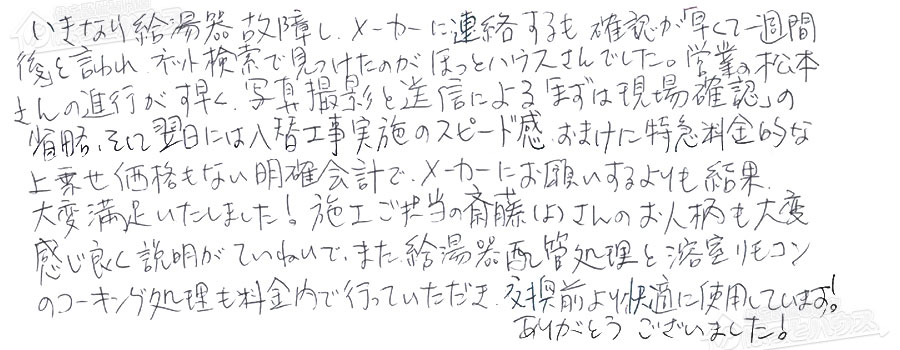 いきなり給湯器故障し、メーカーに連絡するも確認が「早くて一週間
後」と言われ、ネット検索で見つけたのがほっとハウスさんでした。営業の松本
さんの進行がす早く、写真撮影と送信による「まずは現場確認」の
省略、そして翌日には入替工事実施のスピード感、おまけに特急料金的な
上乗せ価格もない明確会計で、メーカーにお願いするよりも結果、
大変満足いたしました！施工ご担当の斎藤(は)さんのお人柄も大変
感じ良く説明がていねいで、また給湯器配管処理と浴室リモコン
のコーキング処理も料金内で行っていただき、交換前より快適に使用しています！
ありがとうございました！